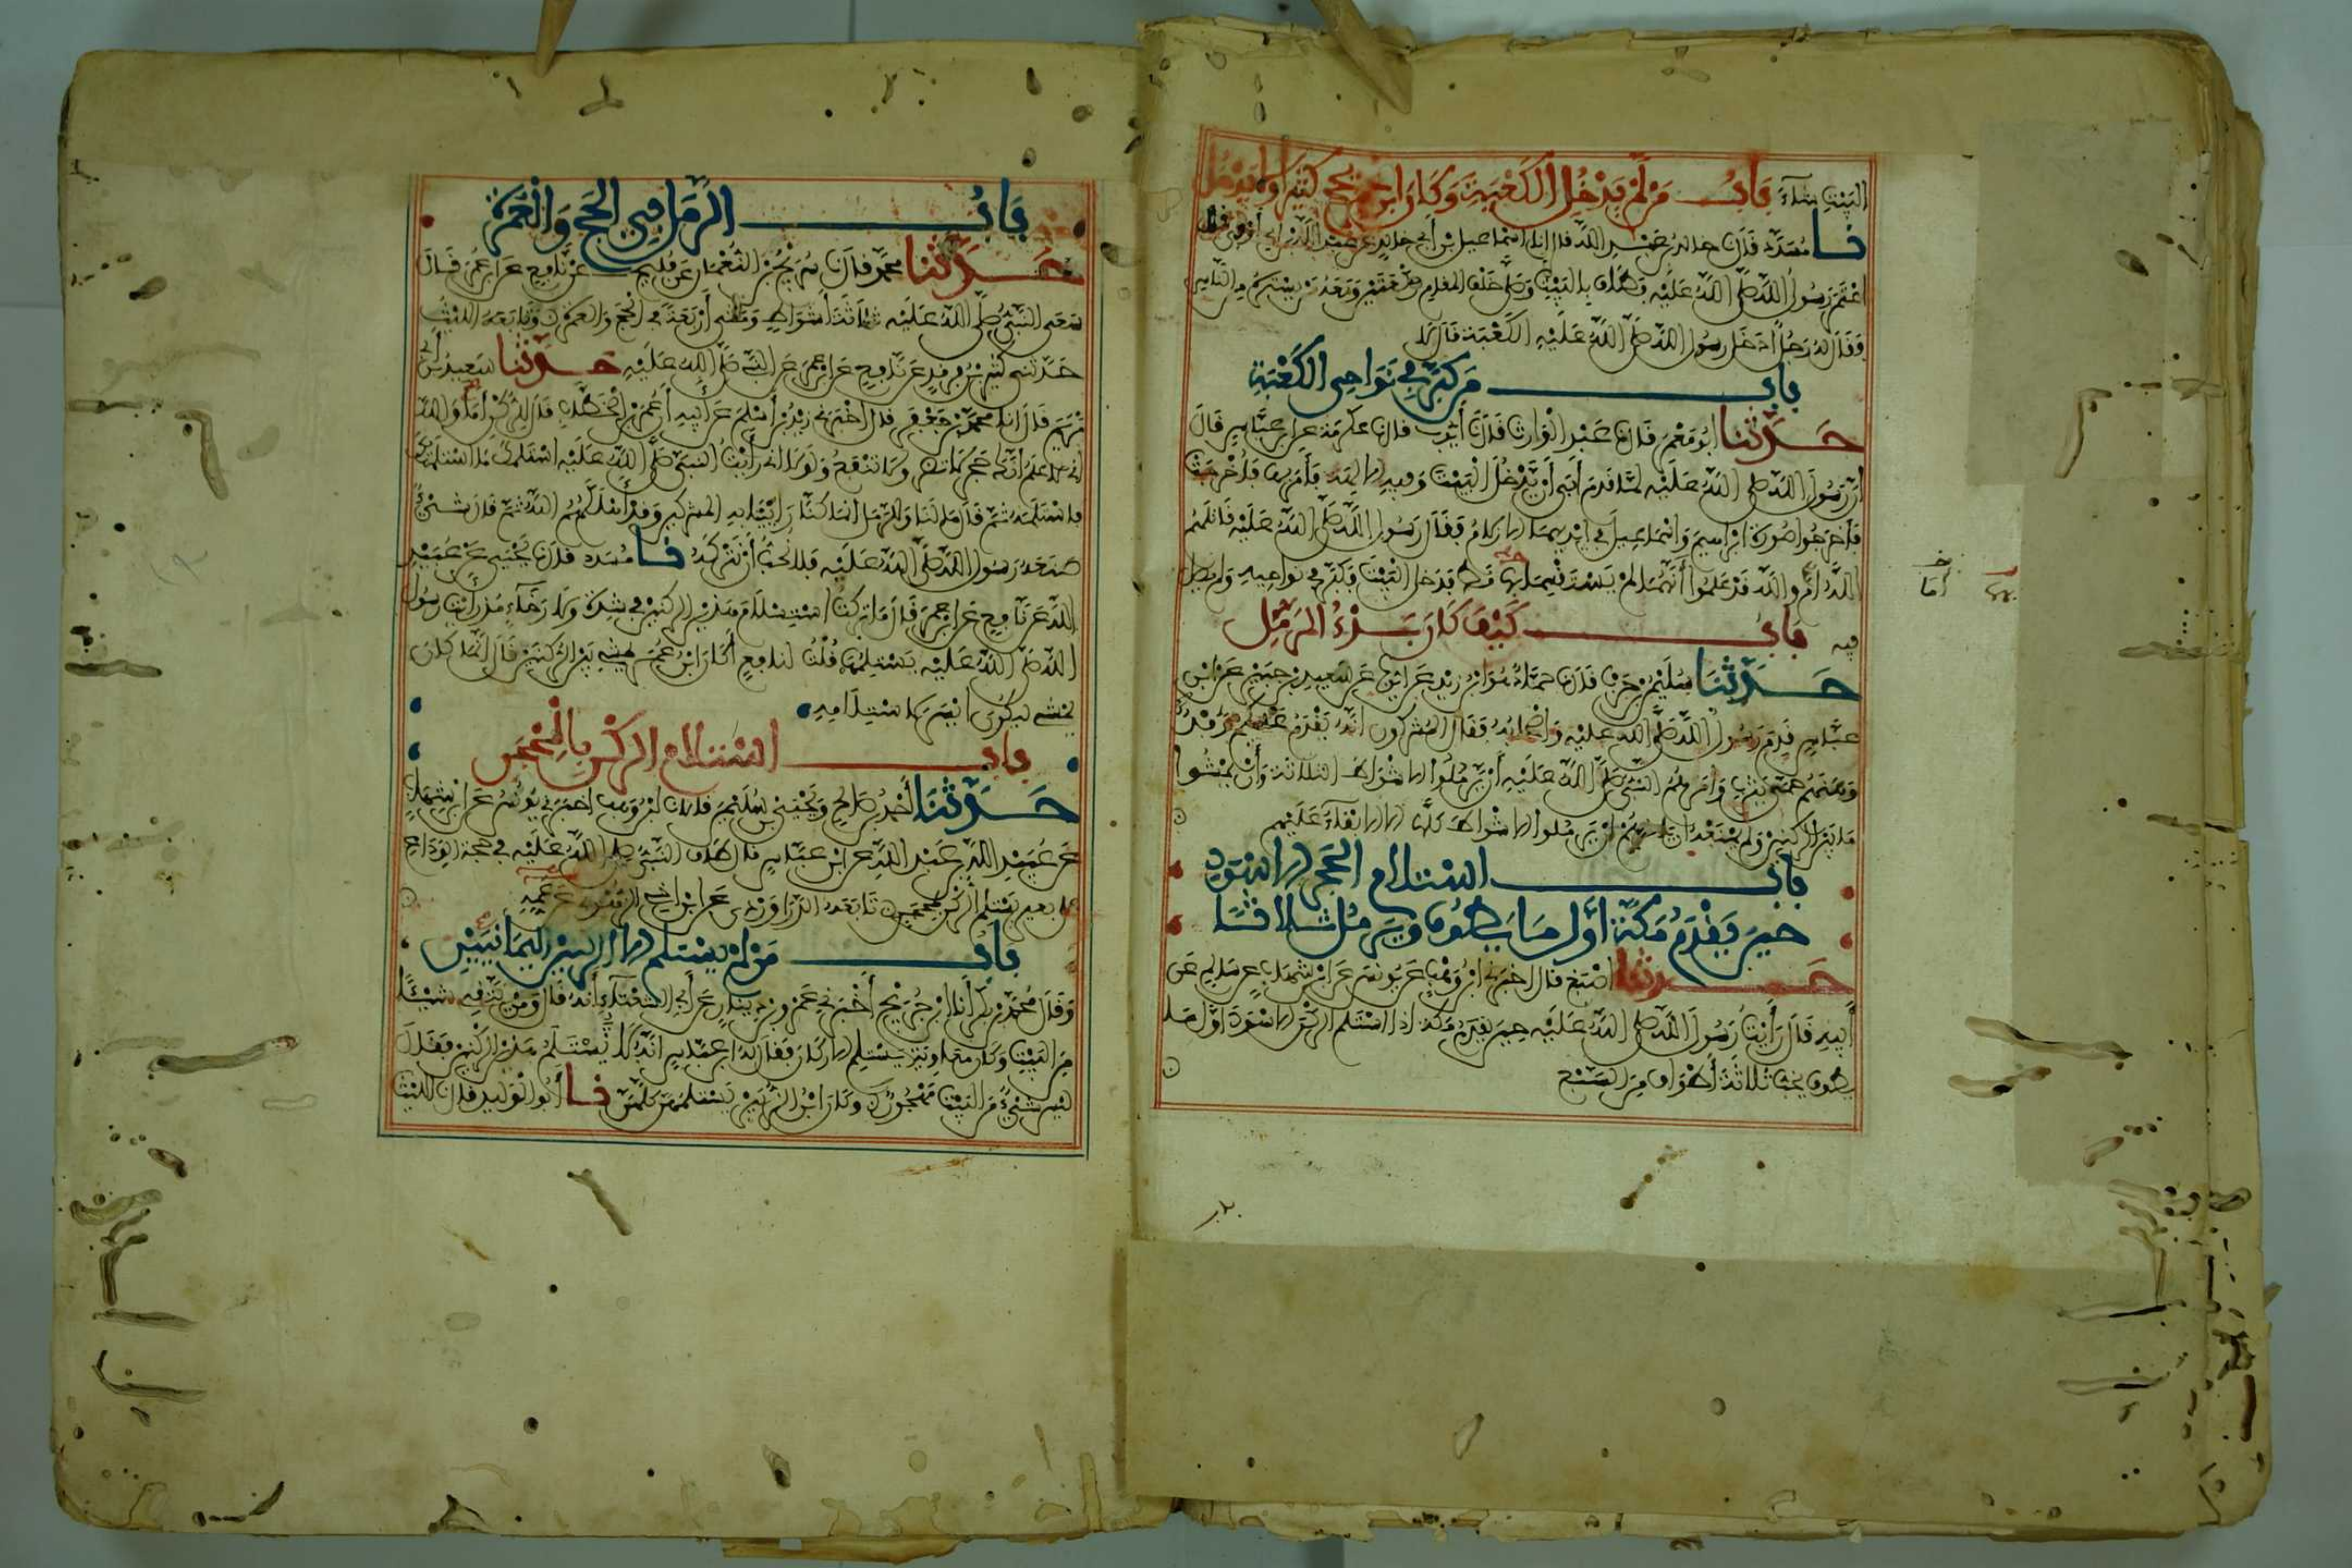 البيت شاء باب من لم يدخل الكعبة وكان ابن عمر يحج كثيرا ولا يدخل
نا مسدد قال نا خالد بن عبد الله قال انا اسماعيل بن أبي خالد عن عبد الله بن أبي أوفى قال
اعتمر رسول الله صلى الله عليه فطاف بالبيت وصلى خلف المقام ركعتين ومعه من يستره من الناس
فقال له رجل أدخل رسول الله صلى الله عليه الكعبة قال لا
باب من كبر في نواحي الكعبة
حدثنا ابو معمر قال نا عبد الوارث قال نا أيوب قال نا عكرمة عن ابن عباس قال
ان رسول الله صلى الله عليه لما قدم أبى أن يدخل البيت وفيه الالهة فأمر بها فأخرجت
فأخرجوا صورة ابراهيم واسماعيل في أيديهما الازلام فقال رسول الله صلى الله عليه قاتلهم
الله أم والله قد علموا أنهما لم يستقسما بها قط فدخل البيت فكبر في نواحيه ولم يصل
فيه باب كيف كان بدء الرمل
حدثنا سليمن بن حرب قال نا حماد هو ابن زيد عن ايوب عن سعيد بن جبير عن ابن
عباس قدم رسول الله صلى الله عليه وأصحابه فقال المشركون انه يقدم عليكم وفد
وهنهم حمى يثرب وأمرهم النبي صلى الله عليه أن يرملوا الاشواط الثلاثة وأن يمشوا
ما بين الركنين ولم يمنعه أن يأمرهم ان يرملوا الاشواط كلها الا الابقاء عليهم
باب استلام الحجر الاسود
حين يقدم مكة أول ما يطوف ويرمل ثلاثا
حدثنا اصبغ قال اخبرني ابن وهب عن يونس عن ابن شهاب عن سالم عن
أبيه قال رأيت رسول الله صلى الله عليه حين يقدم مكة اذا استلم الركن الاسود أول ما
يطوف يخب ثلاثة أطواف من السبع
باب الرمل في الحج والعمرة
حدثنا محمد قال نا سريج بن النعمان عن فليح عن نافع عن ابن عمر قال
سعى النبي صلى الله عليه ثلاثة أشواط ومشى أربعة في الحج والعمرة وتابعه الليث
حدثني كثير بن فرقد عن نافع عن ابن عمر عن النبي صلى الله عليه حدثنا سعيد بن أبي
مريم قال انا محمد بن جعفر قال اخبرني زيد بن أسلم عن أبيه أن عمر بن الخطاب قال للركن أما والله
اني لاعلم أنك حجر لا تضر ولا تنفع ولولا اني رأيت النبي صلى الله عليه استلمك ما استلمتك
فاستلمه ثم قال ما لنا والرمل انما كنا راءينا به المشركين وقد أهلكهم الله ثم قال شيء
صنعه رسول الله صلى الله عليه فلا نحب أن نتركه نا مسدد قال نا يحيى عن عبيد
الله عن نافع عن ابن عمر قال ما تركت استلام هذين الركنين في شدة ولا رخاء منذ رأيت رسول
الله صلى الله عليه يستلمهما قلت لنافع أكان ابن عمر يمشي بين الركنين قال انما كان
يمشي ليكون ايسر لاستلامه
باب استلام الركن بالمحجن
حدثنا أحمد بن صالح ويحيى بن سليمن قالا نا ابن وهب اخبرني يونس عن ابن شهاب
عن عبيد الله بن عبد الله عن ابن عباس قال طاف النبي صلى الله عليه في حجة الوداع
على بعير يستلم الركن بمحجن تابعه الدراوردي عن ابن اخي الزهري عن عمه
باب من لم يستلم الا الركنين اليمانيين
وقال محمد بن بكر أنا ابن جريج أخبرني عمرو بن دينار عن أبي الشعثاء أنه قال ومن يتقي شيئا
من البيت وكان معاوية يستلم الاركان فقال له ابن عباس انه لا يستلم هذين الركنين فقال
ليس شيء من البيت مهجورا وكان ابن الزبير يستلمهن كلهن نا أبو الوليد قال نا الليث
بدر
خـ
أما
بهما